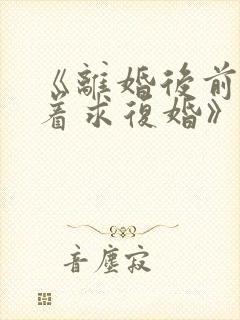 《離婚後前
着求復婚》
音塵寂